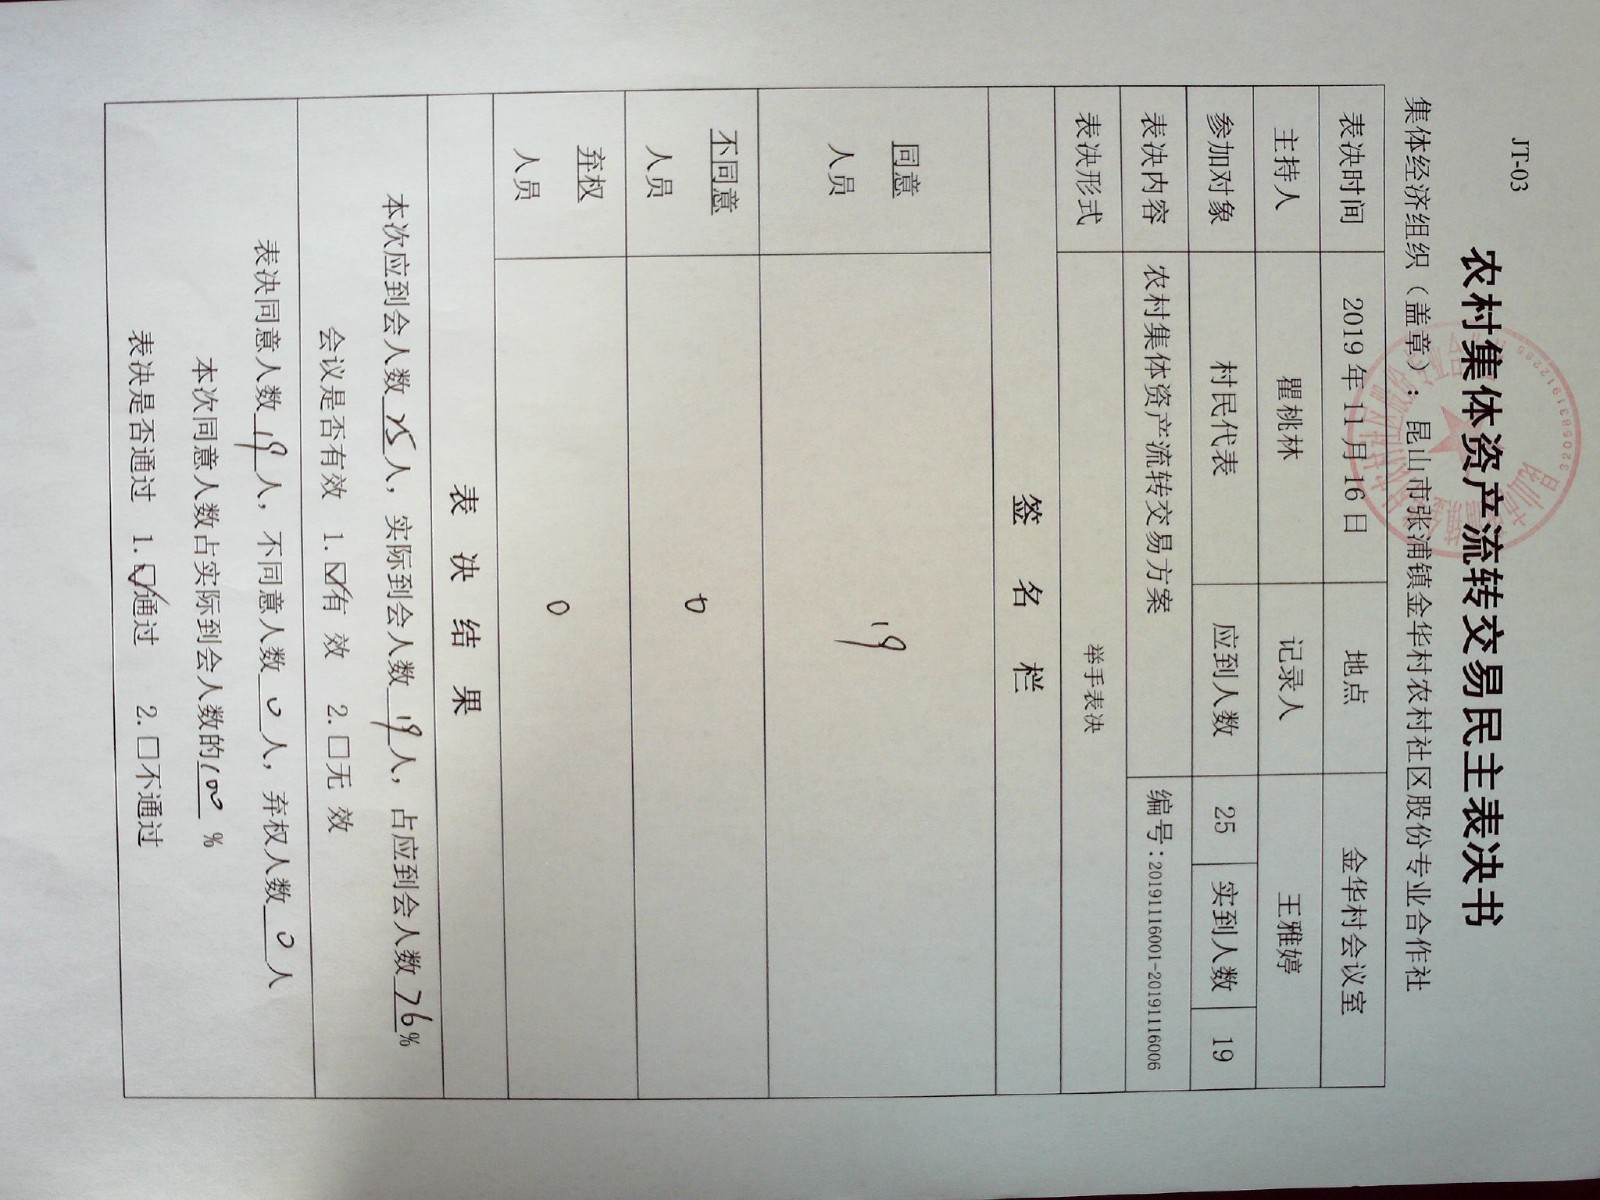 JT-03
农村集体资产流转交易民主表决书
集体经济组织（盖章）：昆山市张浦镇金华村农村社区股份专业合作社
表决时间 2019年11月16日 地点 金华村会议室
主持人 瞿桃林 记录人 王雅婷
参加对象 村民代表 应到人数 25 实到人数 19
表决内容 农村集体资产流转交易方案 编号：20191116001-20191116006
表决形式 举手表决
签 名 栏
同意
人员
19
不同意
人员
0
弃权
人员
0
表 决 结 果
本次应到会人数25人，实际到会人数19人，占应到会人数76%
会议是否有效 1.☑有 效 2.□无 效
表决同意人数19人，不同意人数0人，弃权人数0人
本次同意人数占实际到会人数的100%
表决是否通过 1.☑通过 2.□不通过